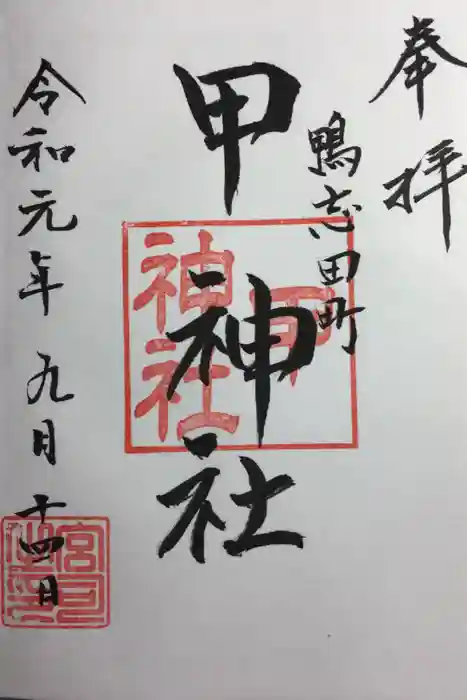 奉拝
鴨志田町
甲神社
甲
神社
令和元年九月十四日